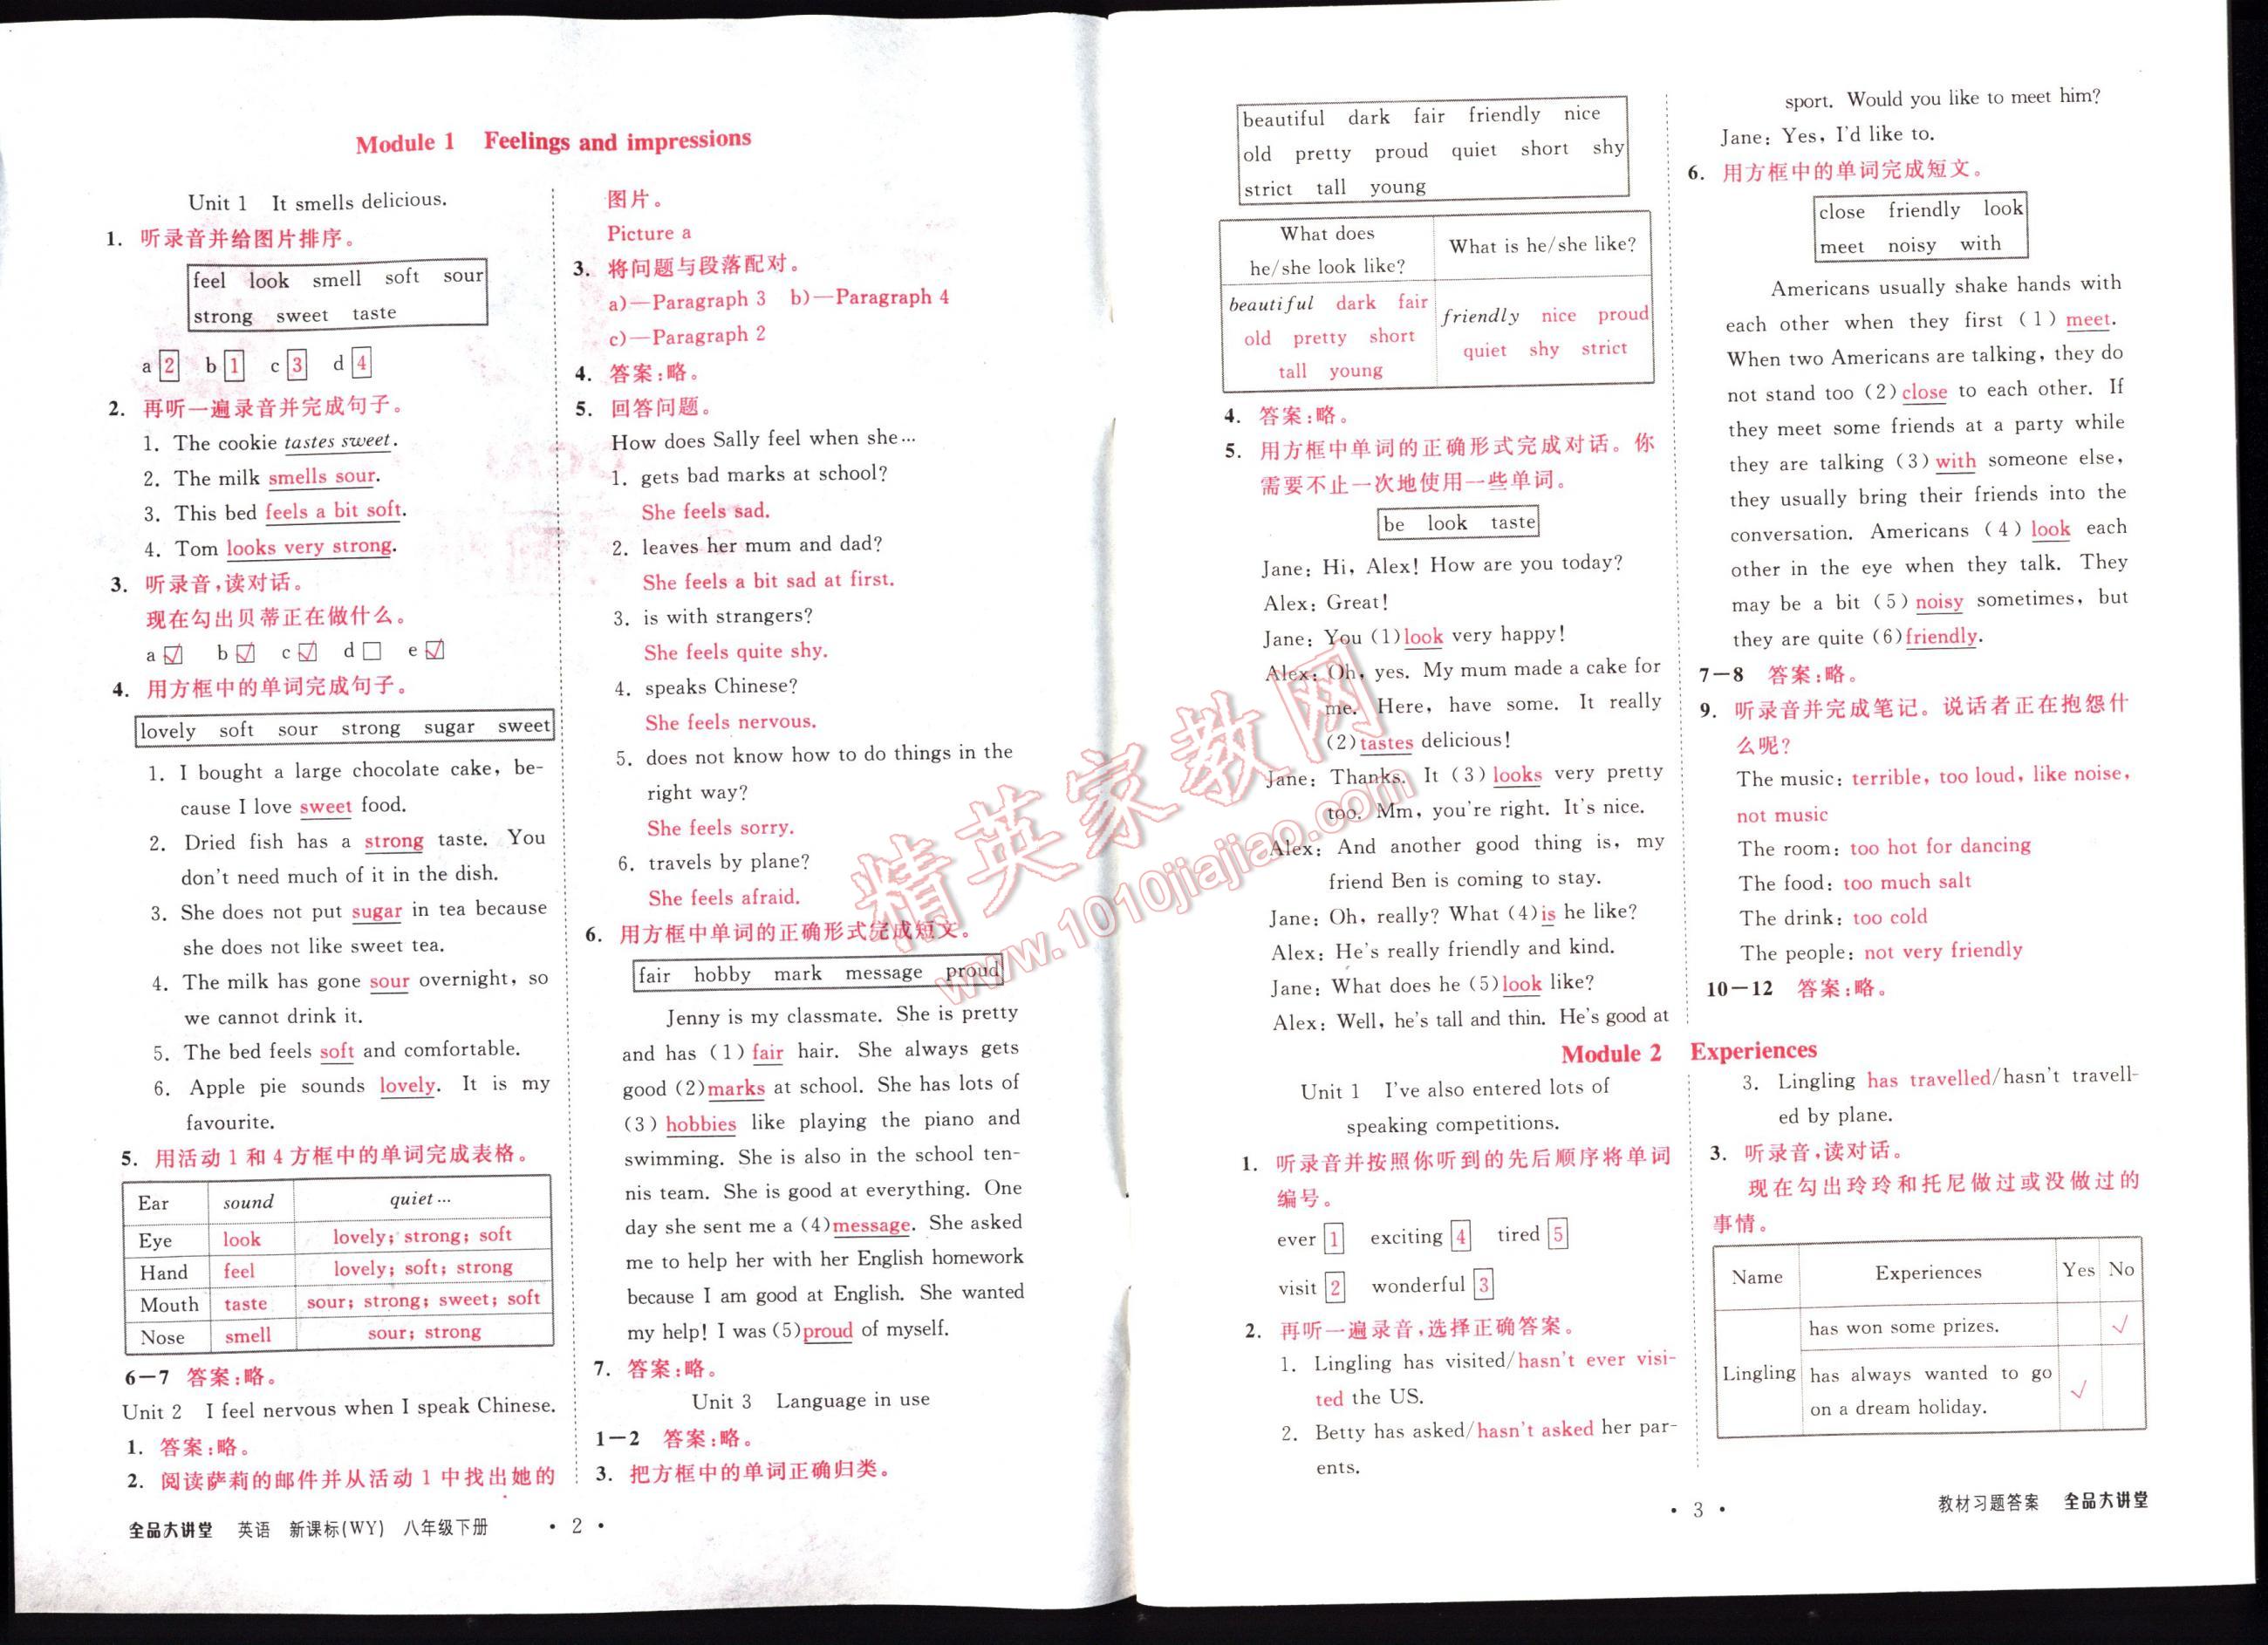 Module 1 Feelings and impressions
Unit 1 It smells delicious.
1. 听录音并给图片排序。
feel look smell soft sour
strong sweet taste
a 2 b 1 c 3 d 4
2. 再听一遍录音并完成句子。
1. The cookie tastes sweet.
2. The milk smells sour.
3. This bed feels a bit soft.
4. Tom looks very strong.
3. 听录音,读对话。
现在勾出贝蒂正在做什么。
a ☑ b ☑ c ☑ d □ e ☑
4. 用方框中的单词完成句子。
lovely soft sour strong sugar sweet
1. I bought a large chocolate cake, be-
cause I love sweet food.
2. Dried fish has a strong taste. You
don't need much of it in the dish.
3. She does not put sugar in tea because
she does not like sweet tea.
4. The milk has gone sour overnight, so
we cannot drink it.
5. The bed feels soft and comfortable.
6. Apple pie sounds lovely. It is my
favourite.
5. 用活动 1 和 4 方框中的单词完成表格。
Ear sound quiet…
Eye look lovely; strong; soft
Hand feel lovely; soft; strong
Mouth taste sour; strong; sweet; soft
Nose smell sour; strong
6—7 答案:略。
Unit 2 I feel nervous when I speak Chinese.
1. 答案:略。
2. 阅读萨莉的邮件并从活动 1 中找出她的
图片。
Picture a
3. 将问题与段落配对。
a)—Paragraph 3 b)—Paragraph 4
c)—Paragraph 2
4. 答案:略。
5. 回答问题。
How does Sally feel when she…
1. gets bad marks at school?
She feels sad.
2. leaves her mum and dad?
She feels a bit sad at first.
3. is with strangers?
She feels quite shy.
4. speaks Chinese?
She feels nervous.
5. does not know how to do things in the
right way?
She feels sorry.
6. travels by plane?
She feels afraid.
6. 用方框中单词的正确形式完成短文。
fair hobby mark message proud
Jenny is my classmate. She is pretty
and has (1) fair hair. She always gets
good (2) marks at school. She has lots of
(3) hobbies like playing the piano and
swimming. She is also in the school ten-
nis team. She is good at everything. One
day she sent me a (4) message. She asked
me to help her with her English homework
because I am good at English. She wanted
my help! I was (5) proud of myself.
7. 答案:略。
Unit 3 Language in use
1—2 答案:略。
3. 把方框中的单词正确归类。
全品大讲堂 英语 新课标(WY) 八年级下册 • 2 •
beautiful dark fair friendly nice
old pretty proud quiet short shy
strict tall young
What does
he/she look like?
What is he/she like?
beautiful dark fair
old pretty short
tall young
friendly nice proud
quiet shy strict
4. 答案:略。
5. 用方框中单词的正确形式完成对话。你
需要不止一次地使用一些单词。
be look taste
Jane: Hi, Alex! How are you today?
Alex: Great!
Jane: You (1) look very happy!
Alex: Oh, yes. My mum made a cake for
me. Here, have some. It really
(2) tastes delicious!
Jane: Thanks. It (3) looks very pretty
too. Mm, you're right. It's nice.
Alex: And another good thing is, my
friend Ben is coming to stay.
Jane: Oh, really? What (4) is he like?
Alex: He's really friendly and kind.
Jane: What does he (5) look like?
Alex: Well, he's tall and thin. He's good at
sport. Would you like to meet him?
Jane: Yes, I'd like to.
6. 用方框中的单词完成短文。
close friendly look
meet noisy with
Americans usually shake hands with
each other when they first (1) meet.
When two Americans are talking, they do
not stand too (2) close to each other. If
they meet some friends at a party while
they are talking (3) with someone else,
they usually bring their friends into the
conversation. Americans (4) look each
other in the eye when they talk. They
may be a bit (5) noisy sometimes, but
they are quite (6) friendly.
7—8 答案:略。
9. 听录音并完成笔记。说话者正在抱怨什
么呢?
The music: terrible, too loud, like noise,
not music
The room: too hot for dancing
The food: too much salt
The drink: too cold
The people: not very friendly
10—12 答案:略。
Module 2 Experiences
Unit 1 I've also entered lots of
speaking competitions.
1. 听录音并按照你听到的先后顺序将单词
编号。
ever 1 exciting 4 tired 5
visit 2 wonderful 3
2. 再听一遍录音,选择正确答案。
1. Lingling has visited/hasn't ever visi-
ted the US.
2. Betty has asked/hasn't asked her par-
ents.
3. Lingling has travelled/hasn't travell-
ed by plane.
3. 听录音,读对话。
现在勾出玲玲和托尼做过或没做过的
事情。
Name Experiences Yes No
Lingling
has won some prizes. √
has always wanted to go
on a dream holiday. √
• 3 • 教材习题答案 全品大讲堂
精英家教网
www.1010jiajiao.com